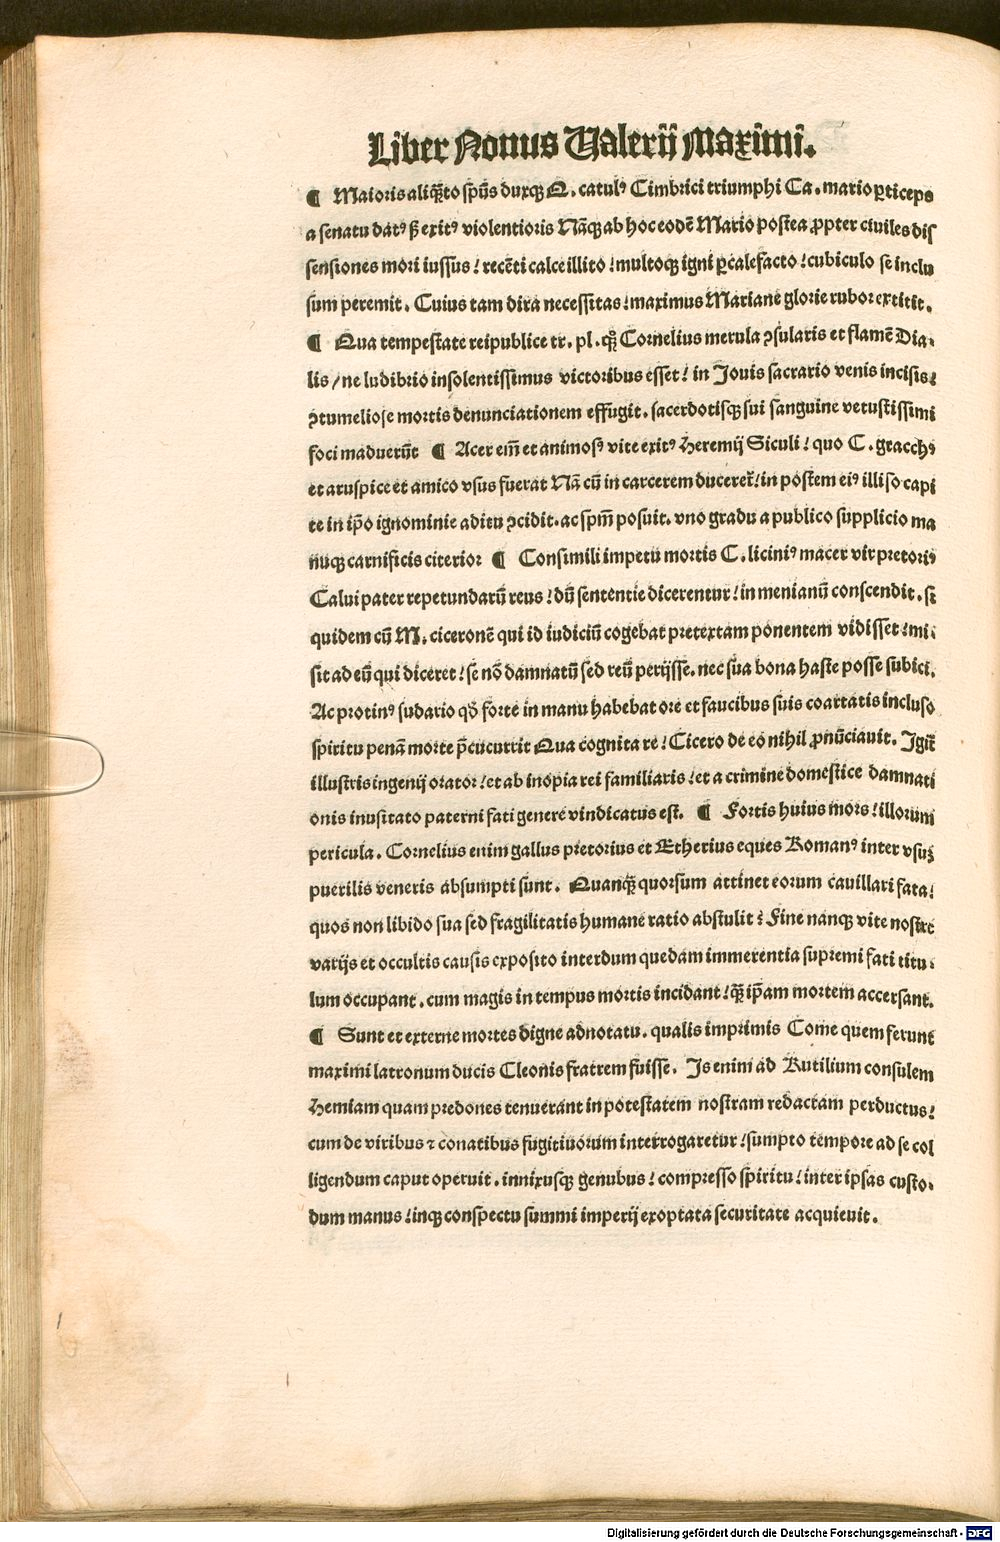 Liber Nonus Ualerij Maximi.
¶ Maioris aliq̃to sp̃us duxqꝫ Q. catulꝰ Cimbrici triumphi Ca. mario ꝑticeps
a senatu datꝰ ß exitꝰ violentioris Nãqꝫ ab hoc eodẽ Mario postea ꝓpter ciuiles dis
sensiones mori iussus / recẽti calce illito / multoqꝫ igni ꝑcalefacto / cubiculo se inclu
sum peremit. Cuius tam dira necessitas / maximus Mariane glorie rubor extitit.
¶ Qua tempestate reipublice tr. pl. qꝫ Cornelius merula ꝯsularis et flamẽ Dia-
lis / ne ludibrio insolentissimus victoribus esset / in Jouis sacrario venis incisis /
ꝯtumeliose mortis denunciationem effugit. sacerdotisqꝫ sui sanguine vetustissimi
foci maduerũt ¶ Acer em̃ et animosꝰ vite exitꝰ Heremij Siculi / quo C. gracchꝰ
et aruspice et amico vsus fuerat Nã cũ in carcerem duceret̃ / in postem eiꝰ illiso capi
te in ip̃o ignominie aditu ꝯcidit. ac spm̃ posuit. vno gradu a publico supplicio ma
nuqꝫ carnificis citerior ¶ Consimili impetu mortis C. liciniꝰ macer vir pretoriꝰ
Calui pater repetundarũ reus / dũ sententie dicerentur / in menianũ conscendit. si
quidem cũ M. ciceronẽ qui id iudiciũ cogebat pretextam ponentem vidisset / mi-
sit ad eũ qui diceret / se nõ damnatũ sed reũ perijsse. nec sua bona haste posse subici.
Ac protinꝰ sudario qđ forte in manu habebat ore et faucibus suis coartatis incluso
spiritu penã morte p̃cucurrit Qua cognita re / Cicero de eo nihil ꝓnũciauit. Igit̃
illustris ingenij orator / et ab inopia rei familiaris / et a crimine domestice damnati
onis inusitato paterni fati genere vindicatus est. ¶ Fortis huius mors / illorum
pericula. Cornelius enim gallus pretorius et Etherius eques Romanꝰ inter vsuꝫ
puerilis veneris absumpti sunt. Quanqꝫ quorsum attinet eorum cauillari fata /
quos non libido sua sed fragilitatis humane ratio abstulit : Fine nanqꝫ vite nostre
varijs et occultis causis exposito interdum quedam immerentia supremi fati titu-
lum occupant. cum magis in tempus mortis incidant / q̃ꝫ ip̃am mortem accersant.
¶ Sunt et externe mortes digne adnotatu. qualis imprimis Come quem ferunt
maximi latronum ducis Cleonis fratrem fuisse. Is enim ad Rutilium consulem
Hemiam quam predones tenuerant in potestatem nostram redactam perductus /
cum de viribus ⁊ conatibus fugitiuorum interrogaretur / sumpto tempore ad se col
ligendum caput operuit. innixusqꝫ genubus / compresso spiritu / inter ipsas custo-
dum manus / inqꝫ conspectu summi imperij exoptata securitate acquieuit.
Digitalisierung gefördert durch die Deutsche Forschungsgemeinschaft - DFG